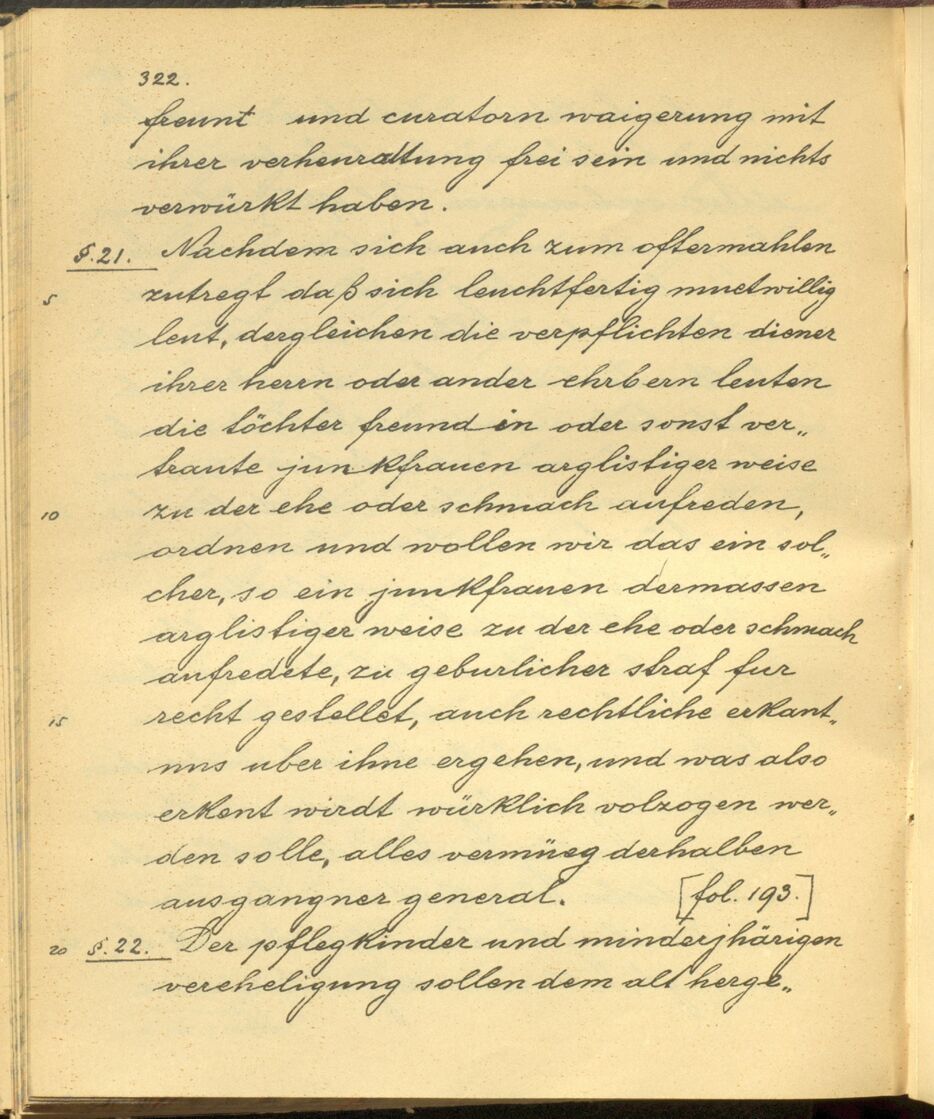 322.
freunt und curatorn waigerung mit
ihrer verheurattung frei sein und nichts
verwürkt haben.
§.21. Nachdem sich auch zum oftermahlen
5 zutregt daß sich leuchtfertig muetwillig
leut, dergleichen die verpflichten diener
ihrer herrn oder ander ehrbern leuten
die töchter freundin oder sonst ver„
traute junkfrauen arglistiger weise
10 zu der ehe oder schmach aufreden,
ordnen und wollen wir das ein sol„
cher, so ein junkfrauen dermassen
arglistiger weise zu der ehe oder schmach
aufredete, zu geburlicher straf fur
15 recht gestellet, auch rechtliche erkant„
nus uber ihne ergehen, und was also
erkent wirdt würklich volzogen wer„
den solle, alles vermüeg derhalben
ausgangner general. [fol. 193.]
20 §.22. Der pflegkinder und minderjhärigen
vereheligung sollen dem alt herge„